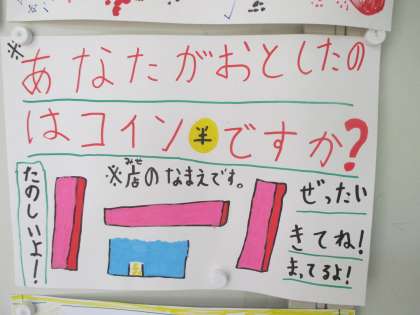 ※あなたがおとしたの
はコイン半ですか?
たのしいよ!
※店のなまえです。
みせ
ぜったい
きてね!
まってるよ!